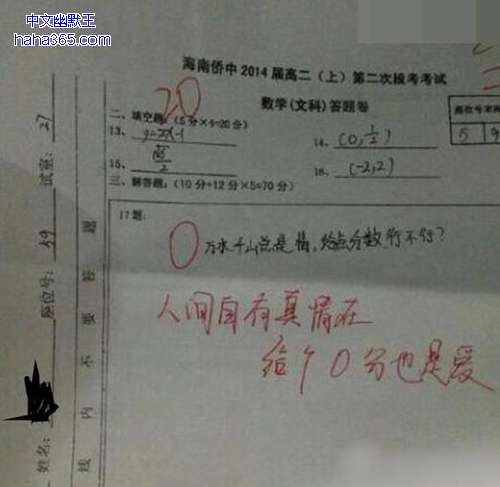 中文幽默王
haha365.com
海南侨中2014届高二（上）第二次段考考试
数学(文科)答题卷
座位号末两
5 9
20
二、填空题:（5分×4=20分）
13、y=2x-1
14、(0,1/2)
15、√5/2
16、(-2,2)
三、解答题:（10分+12分×5=70分）
17题:
0
万水千山总是情,给点分数行不行?
人间自有真情在
给个0分也是爱
试室: 27
座位号: 59
姓名:
线 内 不 要 答 题